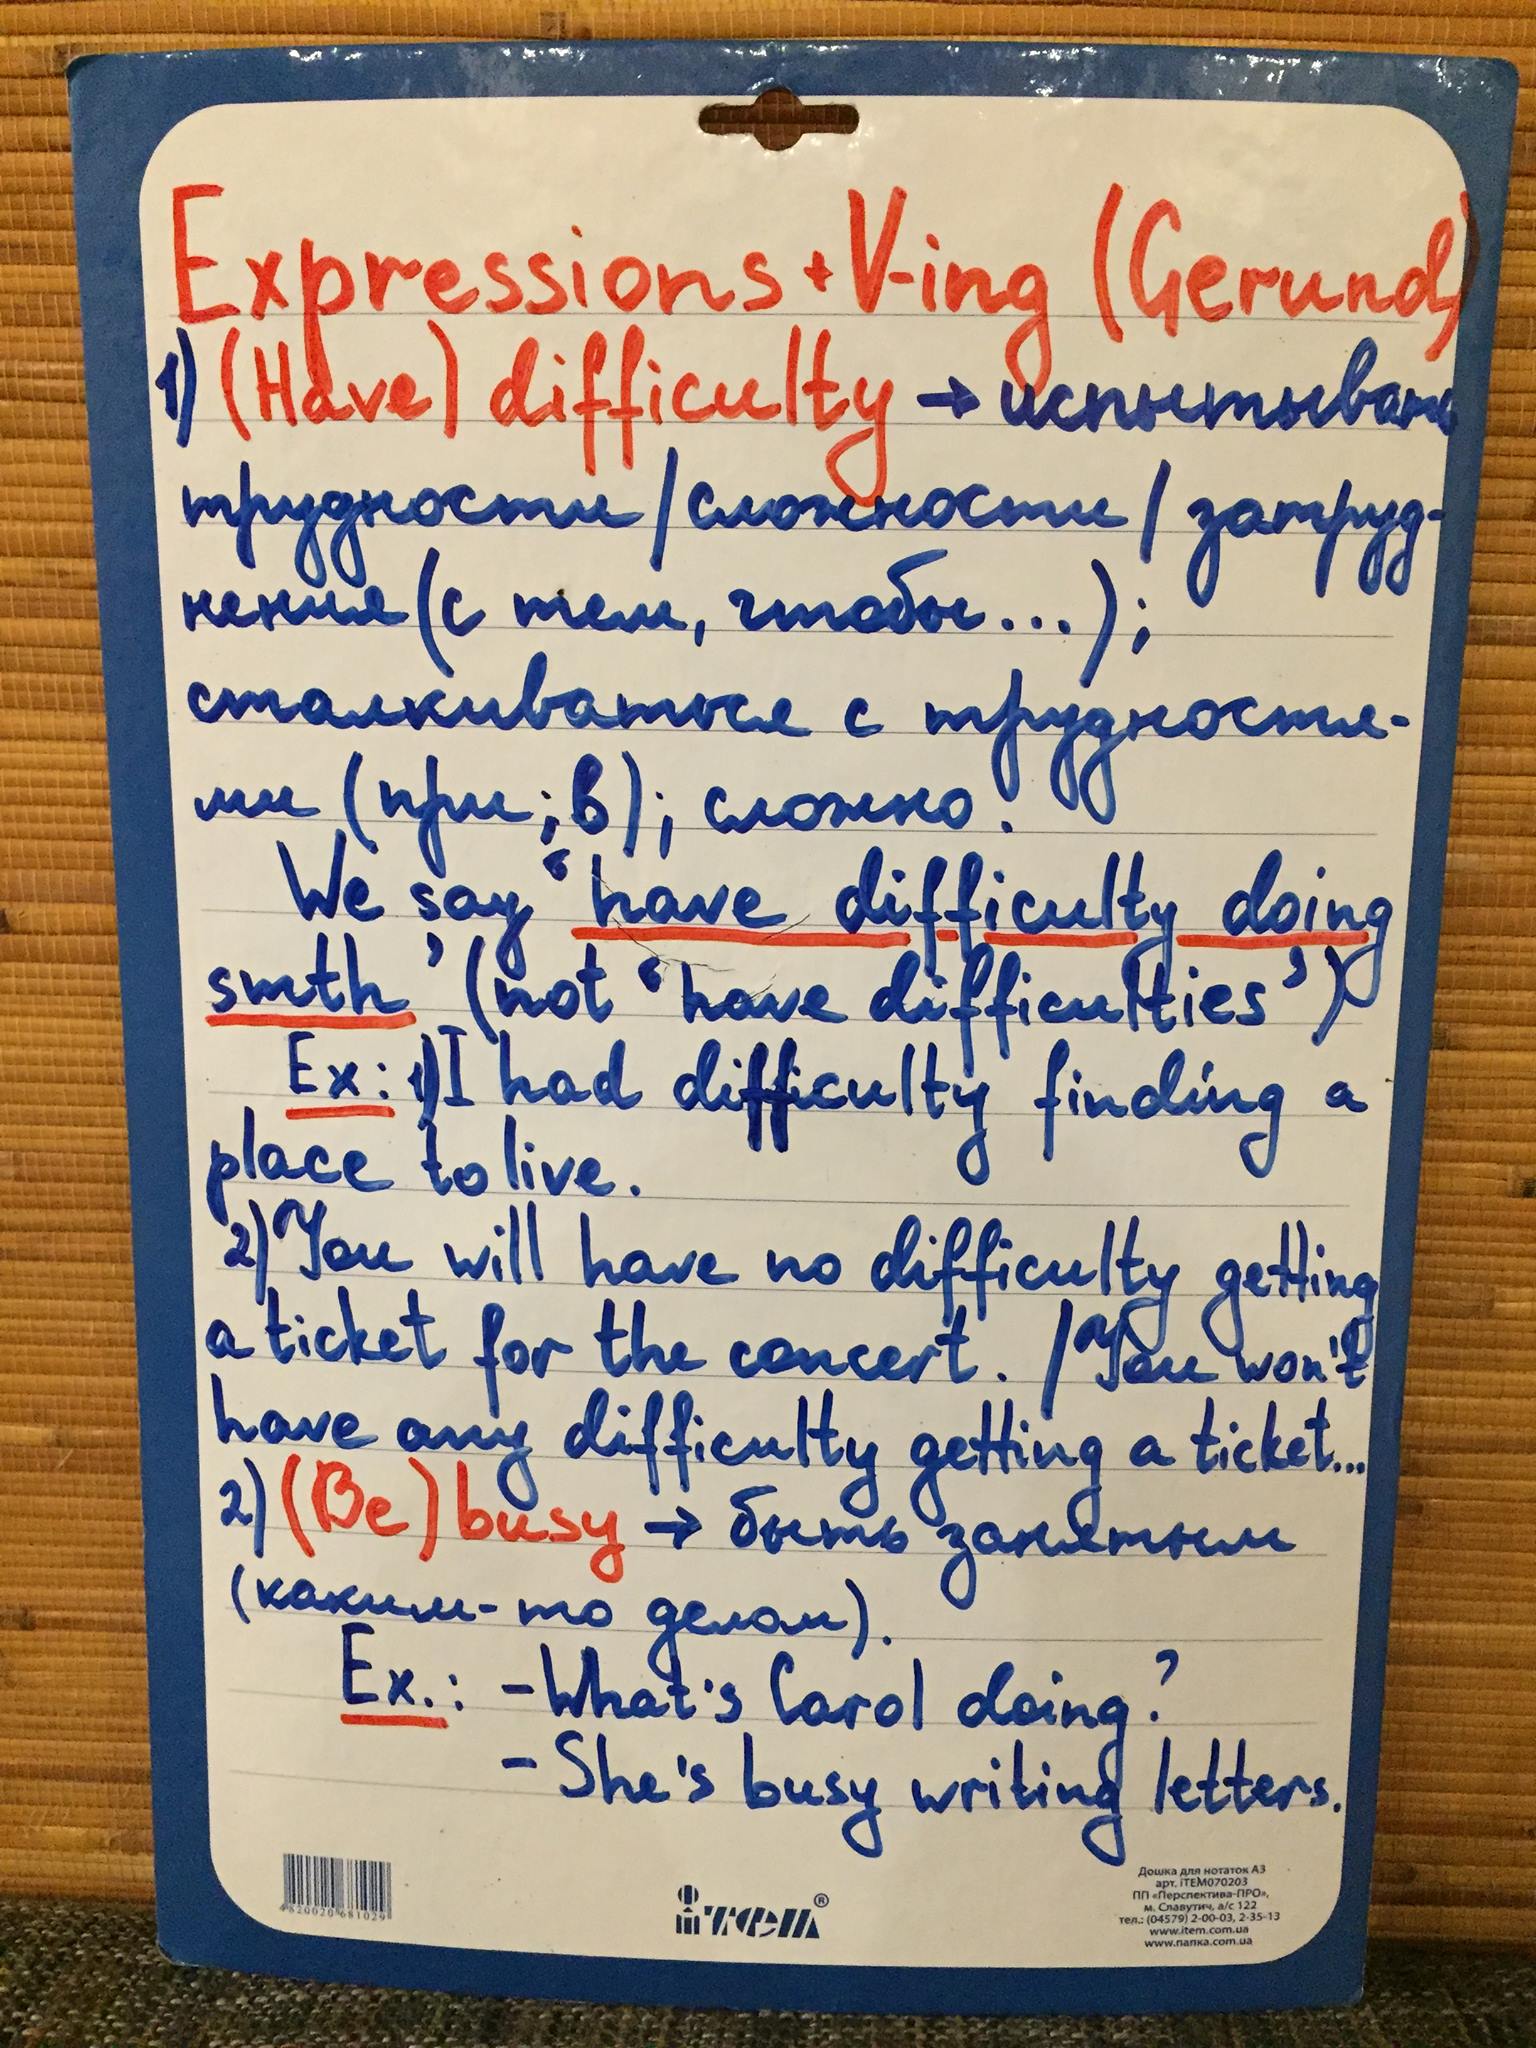 Expressions + V-ing (Gerund)
1) (Have) difficulty → испытывать
трудности / сложности / затруд-
нения (с тем, чтобы ...);
сталкиваться с трудностя-
ми (при; в); сложно.
We say 'have difficulty doing
smth' (not 'have difficulties')
Ex: 1) I had difficulty finding a
place to live.
2) You will have no difficulty getting
a ticket for the concert. / You won't
have any difficulty getting a ticket...
2) (Be) busy → быть занятым
(каким-то делом).
Ex.: - What's Carol doing?
- She's busy writing letters.
4820020681029
iтем®
Дошка для нотаток А3
арт. iTEM070203
ПП «Перспектива-ПРО»,
м. Славутич, а/с 122
тел.: (04579) 2-00-03, 2-35-13
www.item.com.ua
www.папка.com.ua